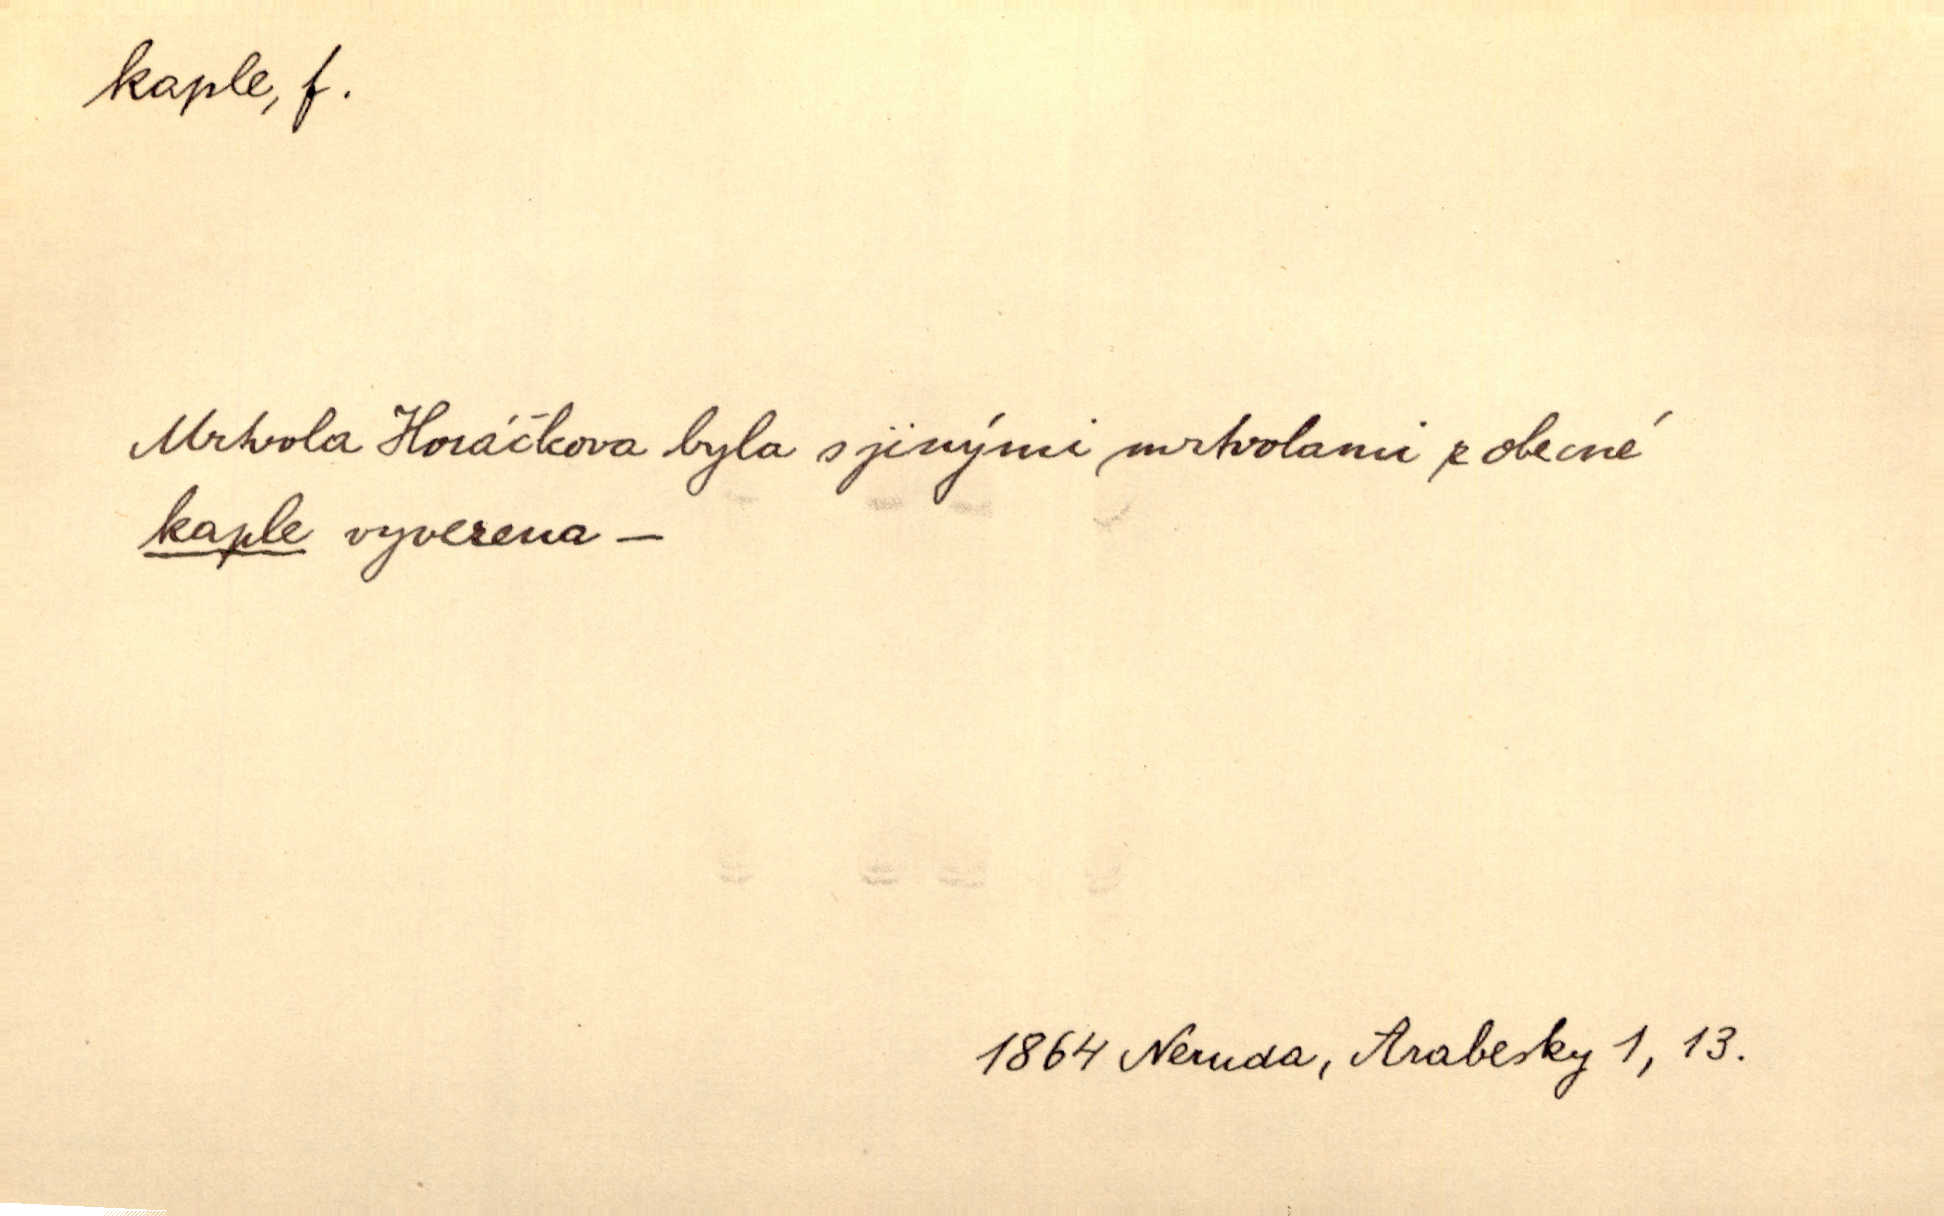 kaple, f.
Mrtvola Horáčkova byla s jinými mrtvolami z obecné
kaple vyvezena –
1864 Neruda, Arabesky 1, 13.